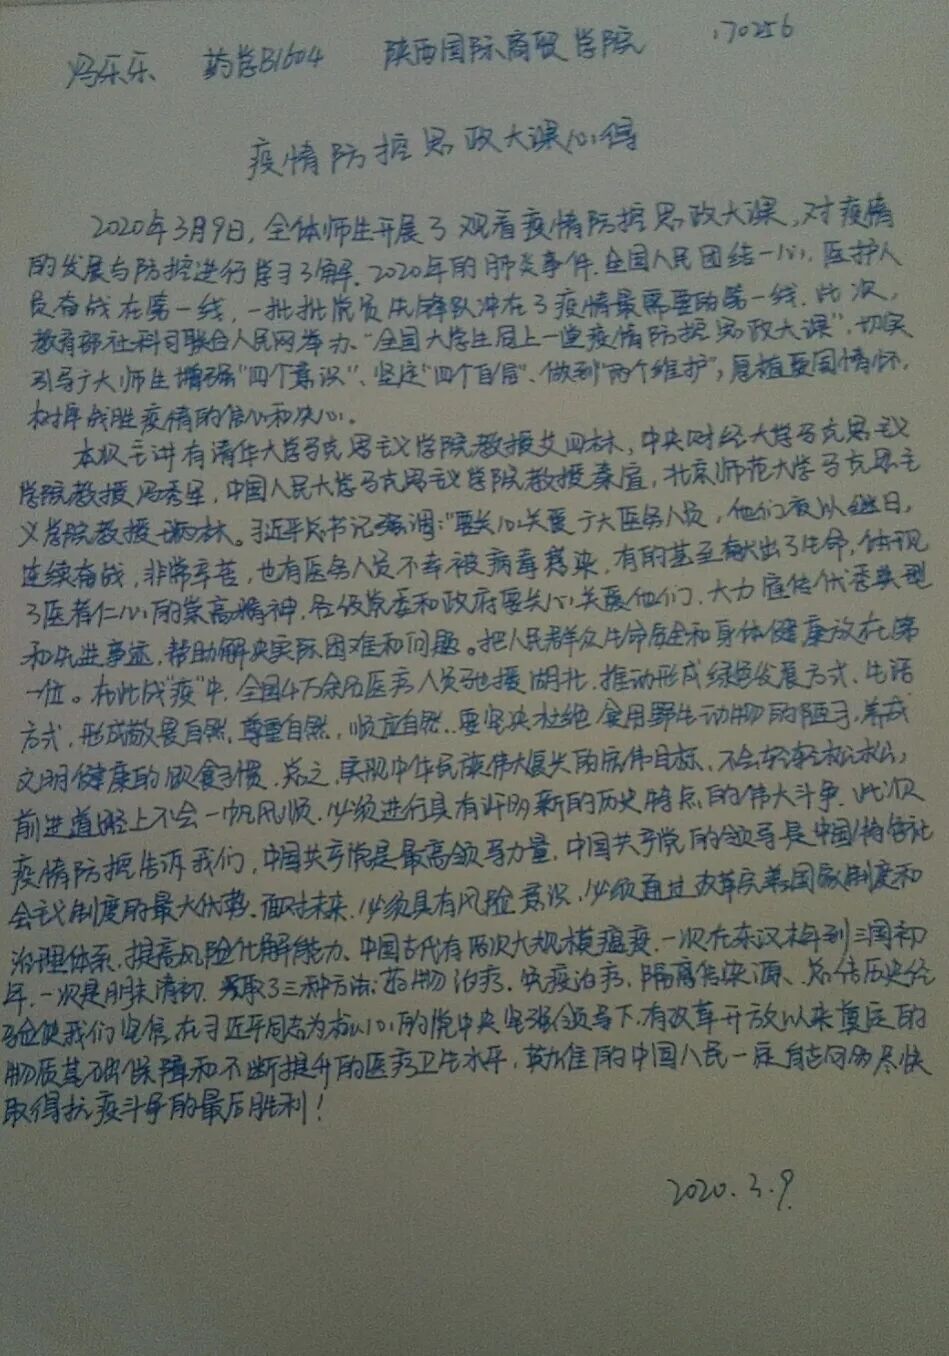 冯乐乐 药学B1604 陕西国际商贸学院 170256
疫情防控思政大课心得
2020年3月9日，全体师生开展了观看疫情防控思政大课，对疫情
的发展与防控进行学习了解．2020年的肺炎事件．全国人民团结一心，医护人
员奋战在第一线，一批批党员先锋队冲在了疫情最需要的第一线．此次，
教育部社科司联合人民网举办"全国大学生同上一堂疫情防控思政大课"，切实
引导广大师生增强"四个意识"、坚定"四个自信"、做到"两个维护"，厚植爱国情怀，
树牢战胜疫情的信心和决心。
本次主讲有清华大学马克思主义学院教授艾四林，中央财经大学马克思主义
学院教授冯秀军，中国人民大学马克思主义学院教授秦宣，北京师范大学马克思主
义学院教授王炳林。习近平总书记强调："要关心关爱广大医务人员，他们夜以继日，
连续奋战，非常辛苦，也有医务人员不幸被病毒感染，有的甚至献出了生命，体现
了医者仁心的崇高精神，各级党委和政府要关心关爱他们．大力宣传优秀典型
和先进事迹，帮助解决实际困难和问题。把人民群众生命安全和身体健康放在第
一位。在此战"疫"中，全国4万余名医务人员驰援湖北．推动形成绿色发展方式、生活
方式，形成敬畏自然，尊重自然，顺应自然．要坚决杜绝食用野生动物的陋习，养成
文明健康的饮食习惯．总之，实现中华民族伟大复兴的宏伟目标，不会轻轻松松，
前进道路上不会一帆风顺．必须进行具有许多新的历史特点的伟大斗争．此次
疫情防控告诉我们，中国共产党是最高领导力量，中国共产党的领导是中国特色社
会主义制度的最大优势．面对未来．必须具有风险意识．必须通过改革完善国家制度和
治理体系．提高风险化解能力．中国古代有两次大规模瘟疫．一次在东汉末到三国初
年．一次是明末清初．采取了三种方法：药物治疗．免疫治疗．隔离传染源、总结历史经
验使我们坚信，在习近平同志为核心的党中央坚强领导下，有改革开放以来奠定的
物质基础保障和不断提升的医疗卫生水平，英雄的中国人民一定能尽快
取得抗疫斗争的最后胜利！
2020.3.9.